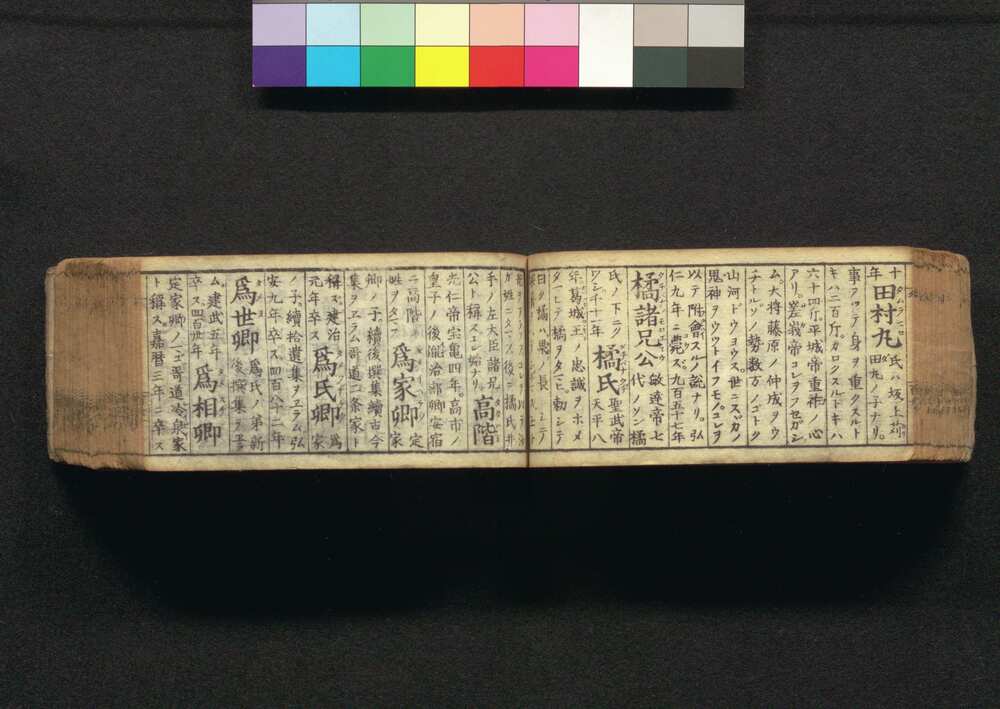 十年 田村丸 氏ハ坂上苅田丸ノ子ナリ。
事アツテ身ヲ重クスルト
キハ二百斤カロクスルトキハ
六十四斤平城帝重祚ノ心
アリ。嵯峨帝コレヲフセガシ
ム大将藤原ノ仲成ヲウ
チトルソノ勢数万ノゴトク
山河ドウヨウス世ニスズカノ
鬼神ヲウウトイフモノコレヲ
以テ附會スルノ説ナリ。弘
仁九年ニ薨ズ九百五十七年
橘諸兄公 敏達帝七代ノソン橘
氏ノ下ニク 橘氏 聖武帝ノ天平八
ワシ千十二年
年葛城王ノ忠誠ヲホメ
タマヒテ橘ヲタマヒ勅シテ
曰ク橘ハ果ノ長
ガ姓ニタマス後ニ橘氏井
手ノ左大臣諸兄 高階
公ト稱スコレ始ナリ。
光仁帝宝亀四年。高市ノ
皇子ノ後治部卿安宿
ニ高階ノ姓ヲタマフ 爲家卿 定家
卿ノ子。續後撰集續古今
集ヲエラム哥道二条家ト
稱ス建治元年卒ス 爲氏卿 爲家
ノ子。續拾遺集ヲエラム弘
安九年卒ス四百八十二年
爲世卿 爲氏ノ弟新後撰集ヲエラ
ム建武五年卒ス四百卅年 爲相卿
定家卿ノ二男哥道冷泉家
ト稱ス嘉暦三年ニ卒ス